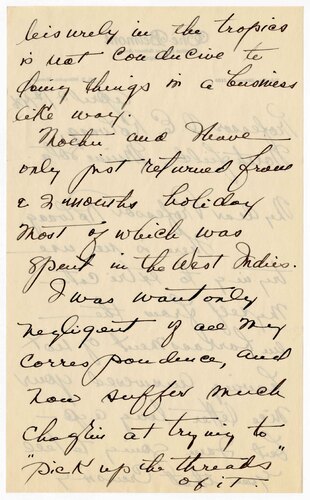 leisurely in the tropics
is not conducive to
doing things in a business
like way.
Mother and I have
only just returned from
a 2 months holiday
most of which was
spent in the West Indies.
I was wantonly
negligent of all my
correspondence, and
now suffer much
chagrin at trying to
"pick up the threads"
of it.